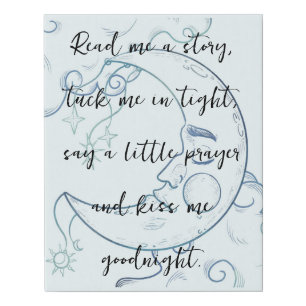 Read me a story,
tuck me in tight,
say a little prayer
and kiss me
goodnight.